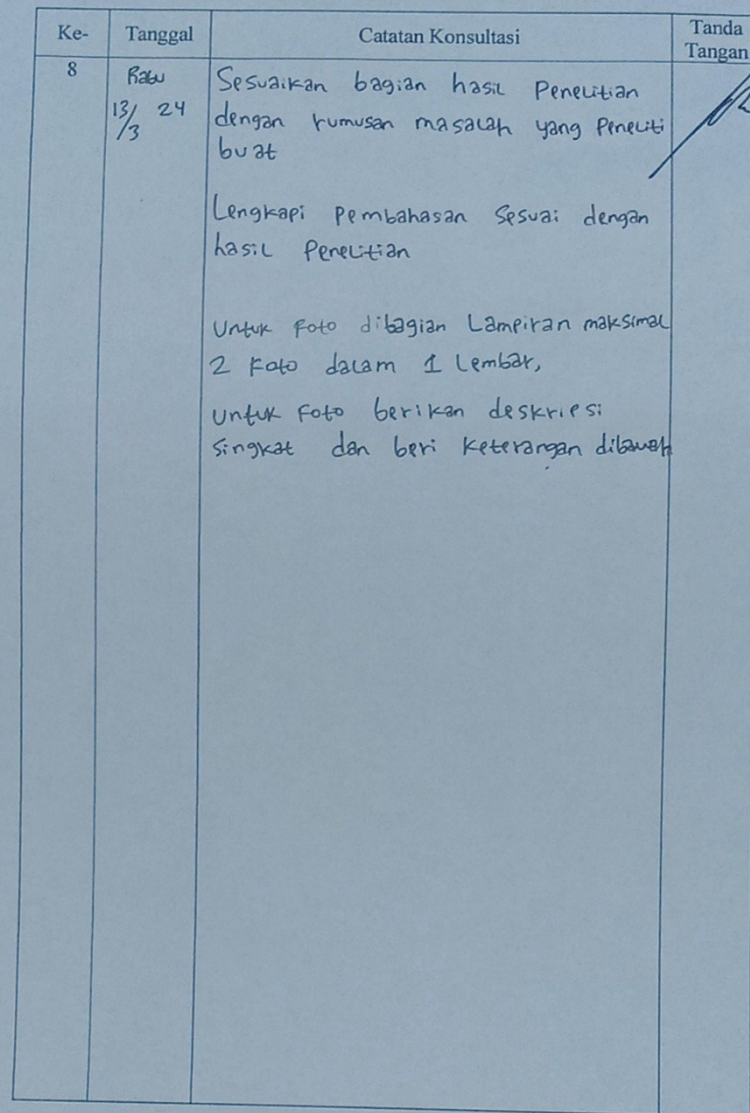 Ke- Tanggal Catatan Konsultasi Tanda Tangan
8 Rabu 13/3 24
Sesuaikan bagian hasil Penelitian
dengan rumusan masalah yang Peneliti
buat
Lengkapi Pembahasan Sesuai dengan
hasil Penelitian
Untuk Foto dibagian Lampiran maksimal
2 Foto dalam 1 Lembar,
Untuk Foto berikan deskripsi
Singkat dan beri Keterangan dibawah